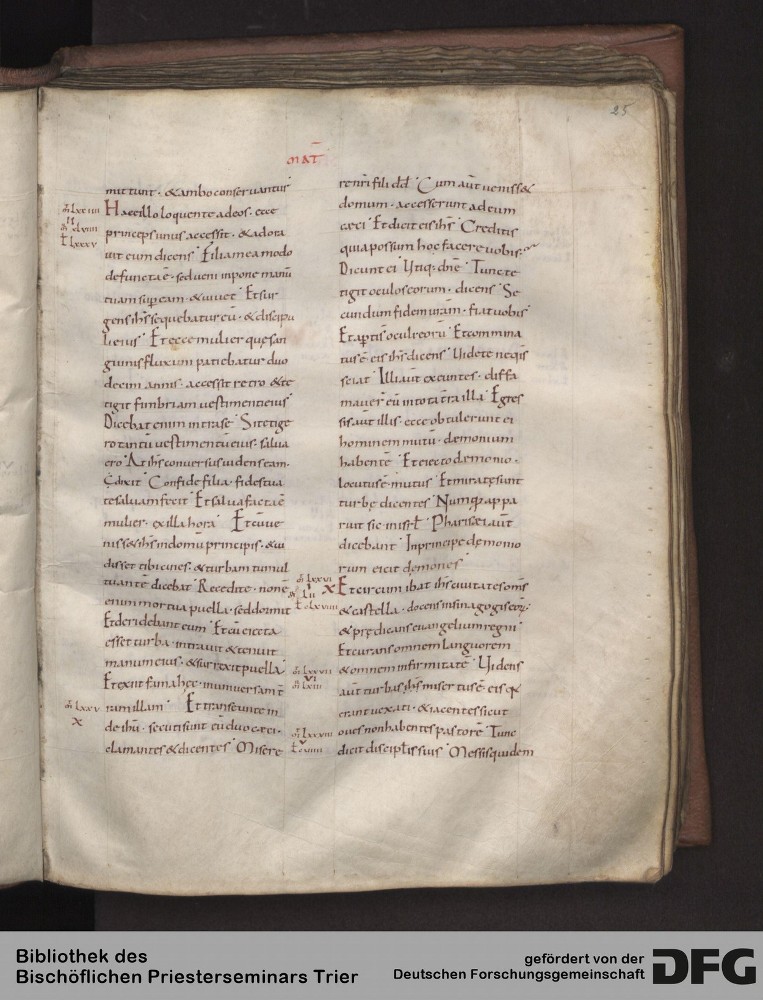 25
MAT
mittunt · & ambo conservantur
Haec illo loquente ad eos · ecce
princeps unus accessit · & adora
vit eum dicens Filia mea modo
defuncta ē · sed veni inpone manū
tuam sup eam · & vivet Et sur
gens ihs sequebatur eū · & discipu
li eius Et ecce mulier quę san
guinis fluxum patiebatur duo
decim annis · accessit retro & te
tigit fimbriam vestimenti eius
Dicebat enim intra se Si tetige
ro tantū vestimentū eius · salva
ero At ihs conversus videns eam ·
Confide filia · fides tua
te salvam fecit Et salva facta ē
mulier · ex illa hora Et cū ve
niss& ihs in domū principis · & vi
disset tibicines · & turbam tumul
tuantē dicebat Recedite · non ē
enim mortua puella · sed dormit
Et deridebant eum Et cū eiecta
esset turba · intravit & tenuit
manum eius · & surrexit puella
Et exiit fama hęc · in universam t
ram illam Et transeunte in
de ihū · secuti sunt eū duo cęci ·
clamantes & dicentes Misere
m lxxiiii
m xlviiii
l lxxxv
m lxxv
x
re nri fili dd Cum aūt veniss&
domum · accesserunt ad eum
cęci Et dicit eis ihs Creditis
quia possum hoc facere vobis ·
Dicunt ei Utiq · dne Tunc te
tigit oculos eorum · dicens Se
cundum fidem vram · fiat vobis
Et apti s oculi eorū Et commina
tus ē eis ihs dicens Videte ne qis
sciat Illi aūt exeuntes · diffa
maver eū in tota tra illa Egres
sis aūt illis · ecce obtulerunt ei
hominem mutū · dęmonium
habentē Et eiecto dęmonio ·
locutus ē mutus Et miratę sunt
turbę dicentes Numq appa
ruit sic in isrl Pharisęi aūt
dicebant In principe dęmonio
rum eicit dęmones
Et circumibat ihs civitates oms
& castella · docens in sinagogis eoz ·
& prędicans evangelium regni
Et curans omnem languorem
& omnem infirmitatē Videns
aūt turbas ihs misertus ē eis q
erant vexati · & iacentes sicut
oves non habentes pastorē Tunc
dicit discipłis suis Messis quidem
m lxxvi
x
m lxxvii
vi
m lxiii
m lxxviii
v
Bibliothek des
Bischöflichen Priesterseminars Trier
gefördert von der
Deutschen Forschungsgemeinschaft
DFG